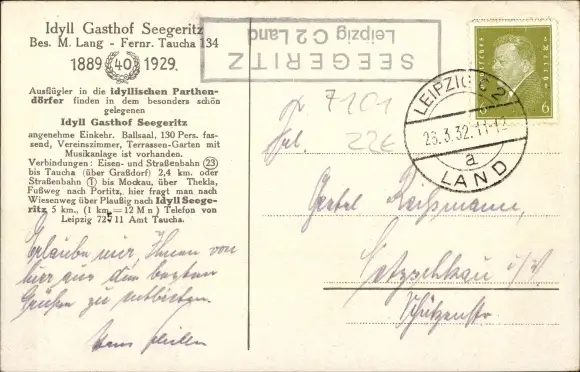 Idyll Gasthof Seegeritz
Bes. M. Lang - Fernr. Taucha 134
1889 40 1929.
Ausflügler in die idyllischen Parthen-
dörfer finden in dem besonders schön
gelegenen
Idyll Gasthof Seegeritz
angenehme Einkehr. Ballsaal, 130 Pers. fas-
send, Vereinszimmer, Terrassen-Garten mit
Musikanlage ist vorhanden.
Verbindungen: Eisen- und Straßenbahn (23)
bis Taucha (über Graßdorf) 2,4 km. oder
Straßenbahn (1) bis Mockau, über Thekla,
Fußweg nach Portitz, hier fragt man nach
Wiesenweg über Plaußig nach Idyll Seege-
ritz 5 km., (1 km = 12 M n) Telefon von
Leipzig 72511 Amt Taucha.
Erlaube mir, Ihnen von
hier aus die besten
Grüße zu
SEEGERITZ
Leipzig C 2 Land
LEIPZIG C 2
23.3.32.11-12
a
LAND
Deutsches Reich
6 6
7101
22€
Frl.